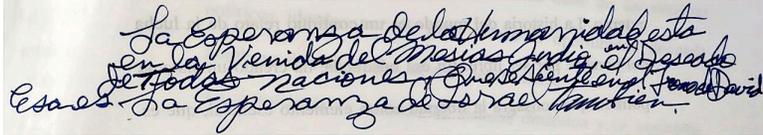 La Esperansa de la Humanidad esta
en la Venida del Mesias Judio, el Deseado
de Todas naciones y Que se siente en el Trono de David
Esa es La Esperanza de Israel tambien.